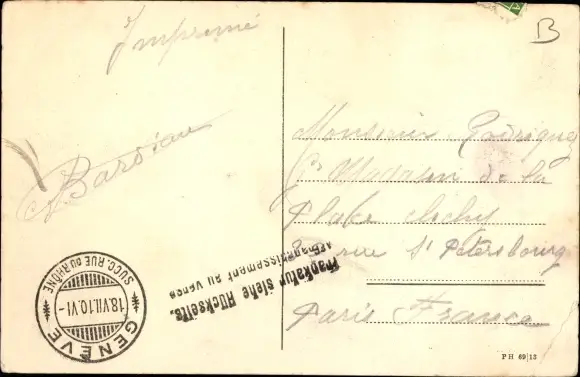 B
Imprimé
Monsieur Rodriguez
Magasin de la
Place Clichy
rue St Petersbourg
Paris France
Frankatur siehe Rückseite.
Affranchissement au verso
SUCC. RUE DU RHÔNE
18.VII.10.VI-
GENÈVE
PH 69|13